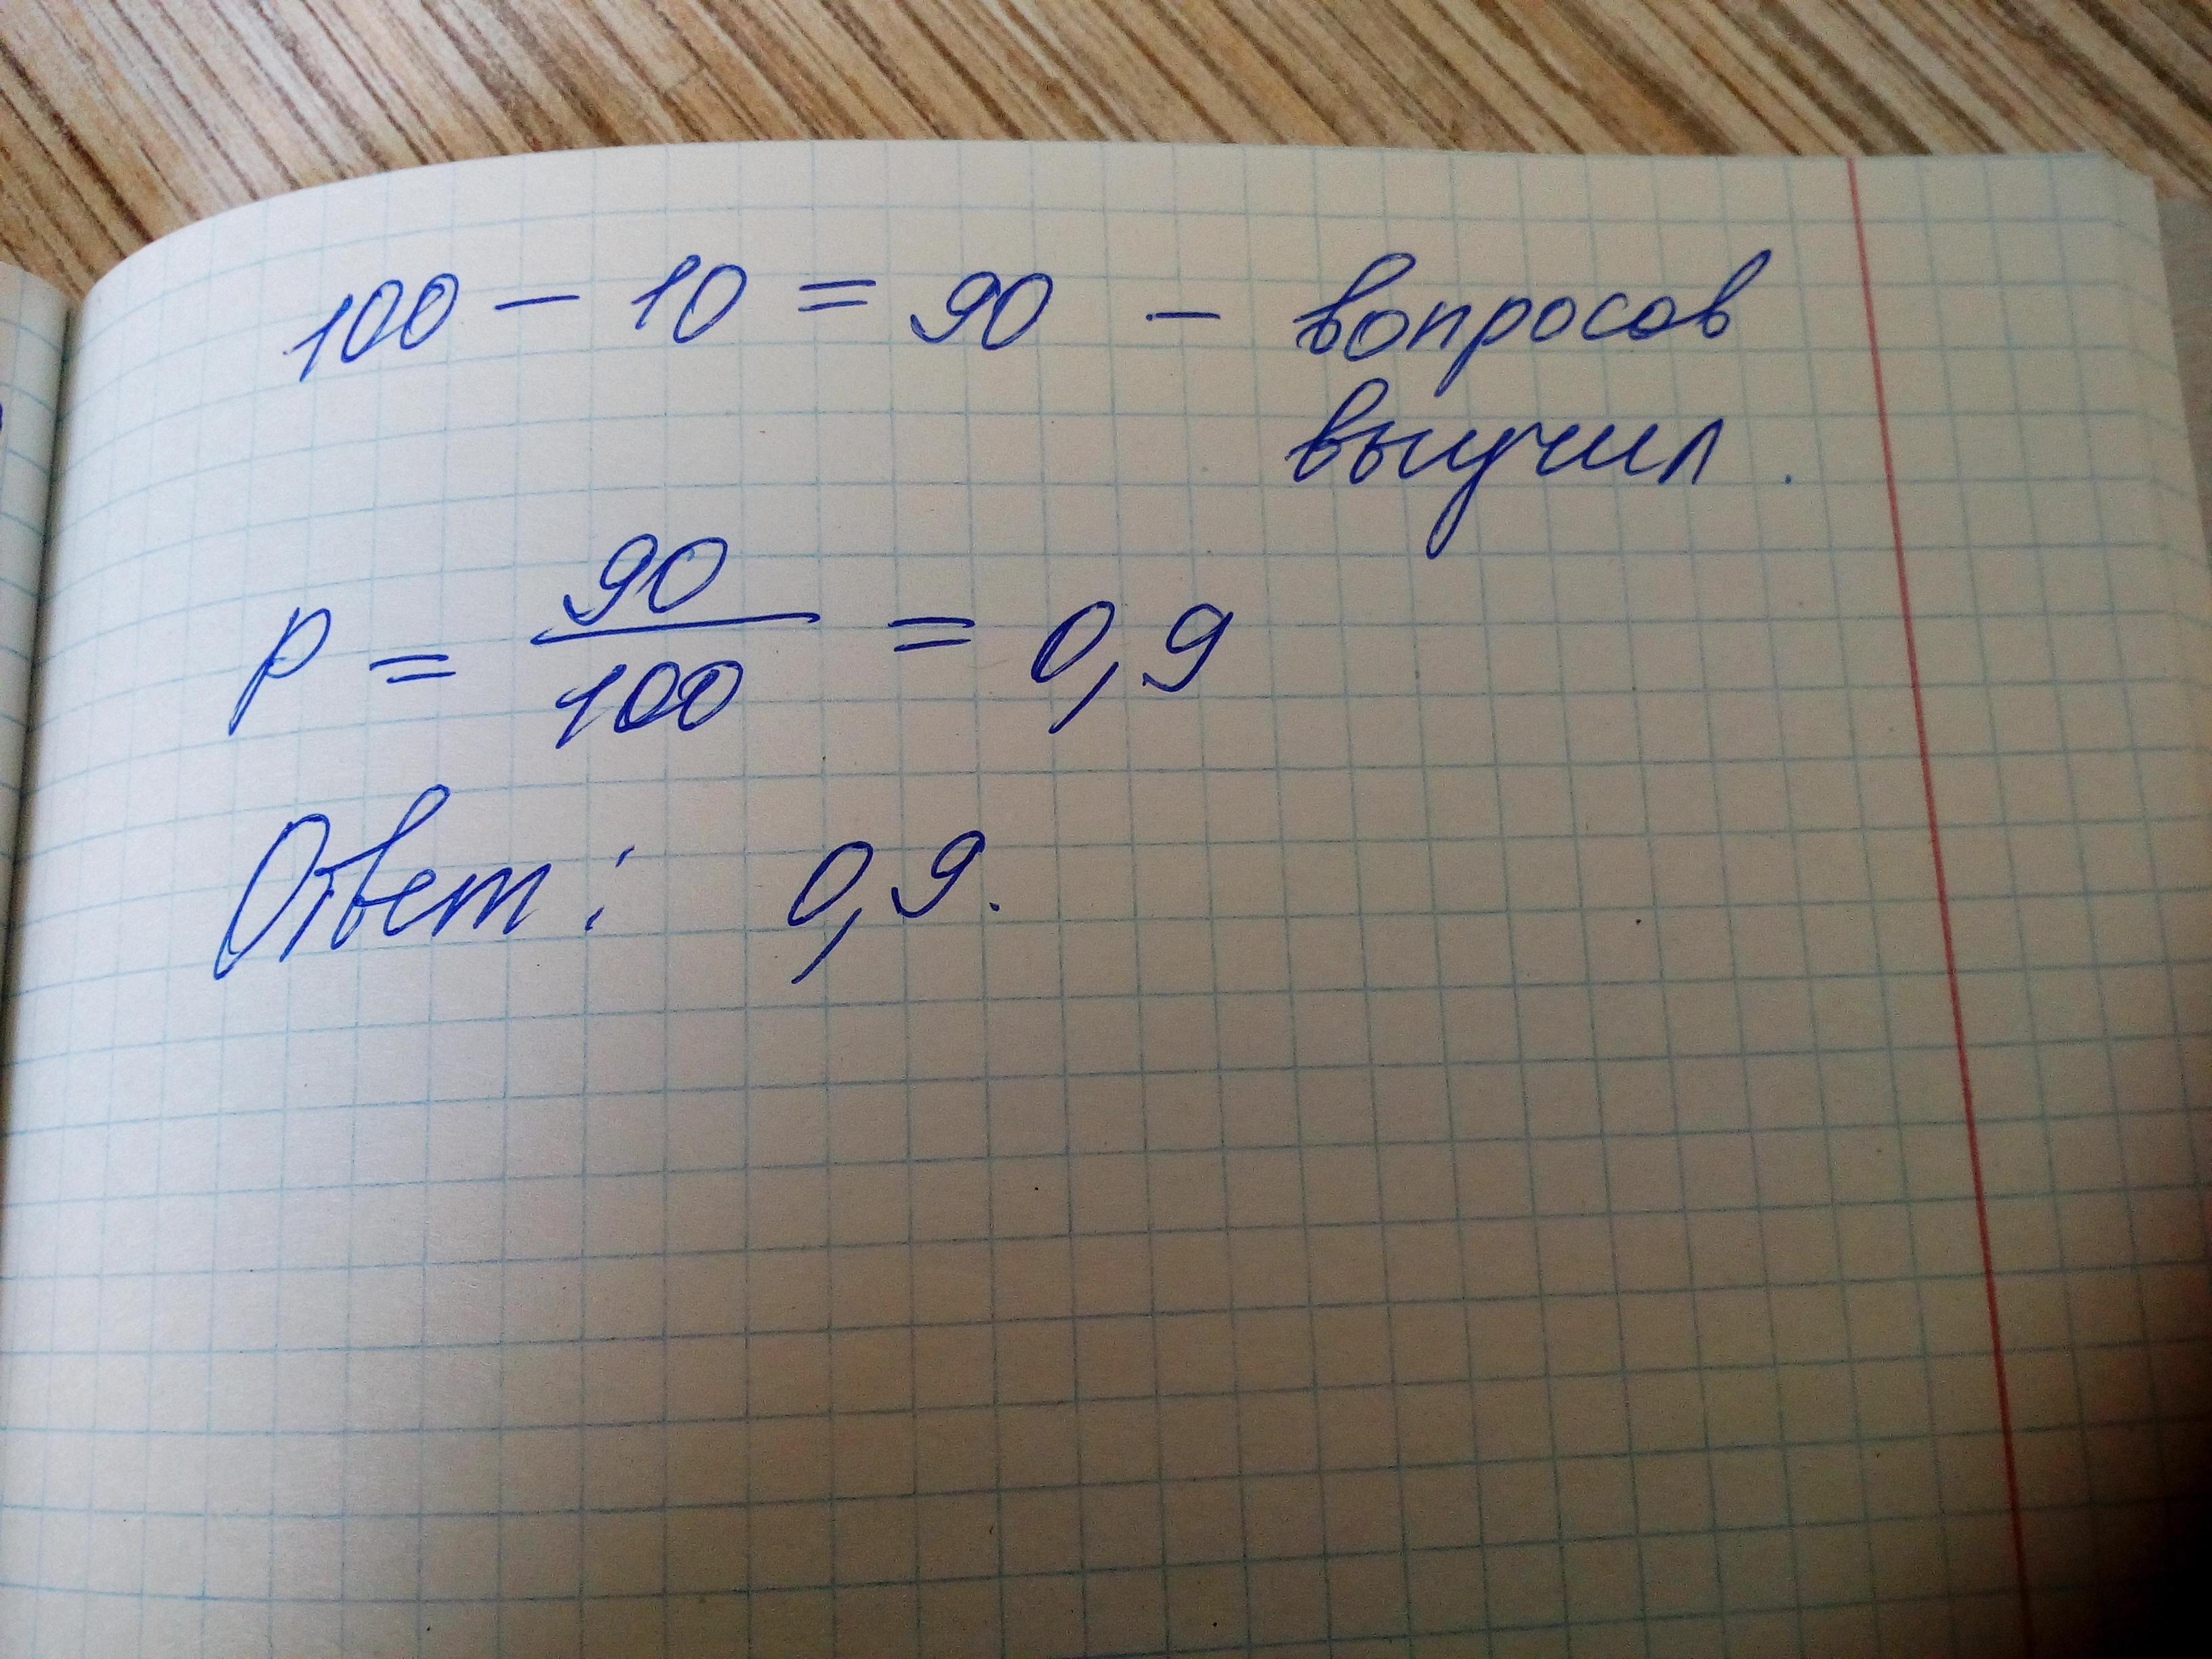 100 - 10 = 90 - вопросов
выучил.
P = 90/100 = 0,9
Ответ: 0,9.